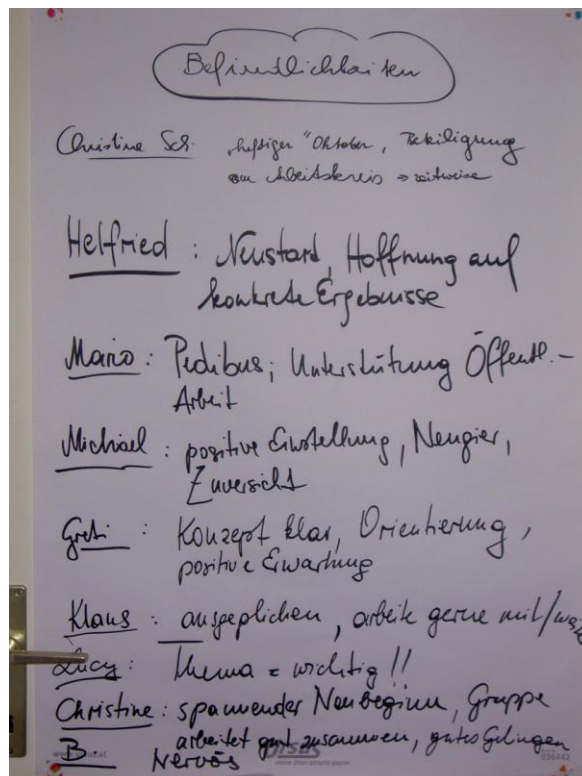 Befindlichkeiten
Christine Sch. "heftiger" Oktober, Beteiligung
am Arbeitskreis → zeitweise
Helfried : Neustart, Hoffnung auf
konkrete Ergebnisse
Mario : Pedibus; Unterstützung Öffentl.-
Arbeit
Michael : positive Einstellung, Neugier,
Zuversicht
Greti : Konzept klar, Orientierung,
positive Erwartung
Klaus : ausgeglichen, arbeite gerne mit/
Lucy: Thema = wichtig!!
Christine : spannender Neubeginn, Gruppe
B arbeitet gut zusammen, gutes Gelingen
Nervös
more than simple paper
056442